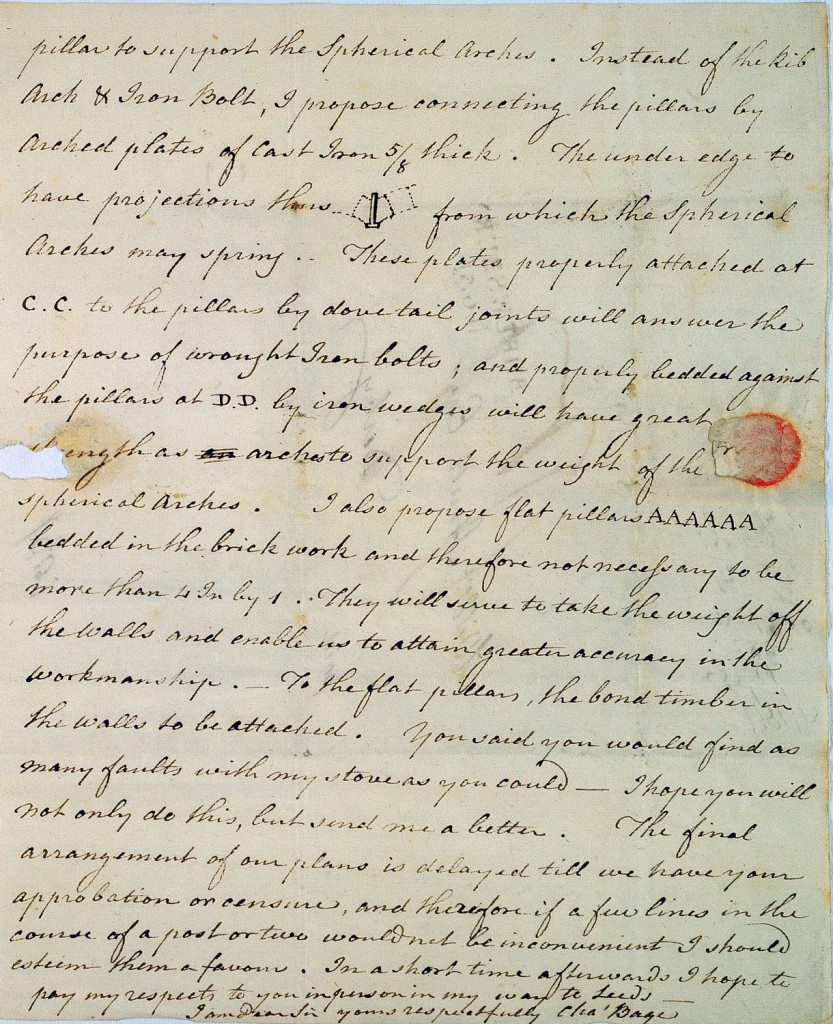 pillar to support the Spherical Arches. Instead of the Rib
Arch & Iron Bolt, I propose connecting the pillars by
Arched plates of Cast Iron 5/8 thick. The under edge to
have projections thus from which the Spherical
Arches may spring.- These plates properly attached at
C.C. to the pillars by dovetail joints will answer the
purpose of wrought Iron bolts; and properly bedded against
the pillars at D.D. by iron wedges will have great
strength as arches to support the weight of the
spherical Arches. I also propose flat pillars AAAAAA
bedded in the brick work and therefore not necessary to be
more than 4 In by 1.. They will serve to take the weight off
the walls and enable us to attain greater accuracy in the
workmanship. — To the flat pillars, the bond timber in
the walls to be attached. You said you would find as
many faults with my stove as you could — I hope you will
not only do this, but send me a better. The final
arrangement of our plans is delayed till we have your
approbation or censure, and therefore if a few lines in the
course of a post or two would not be inconvenient I should
esteem them a favour. In a short time afterwards I hope to
pay my respects to you in person in my way to Leeds —
I am Dear Sir yours respectfully Cha' Bage